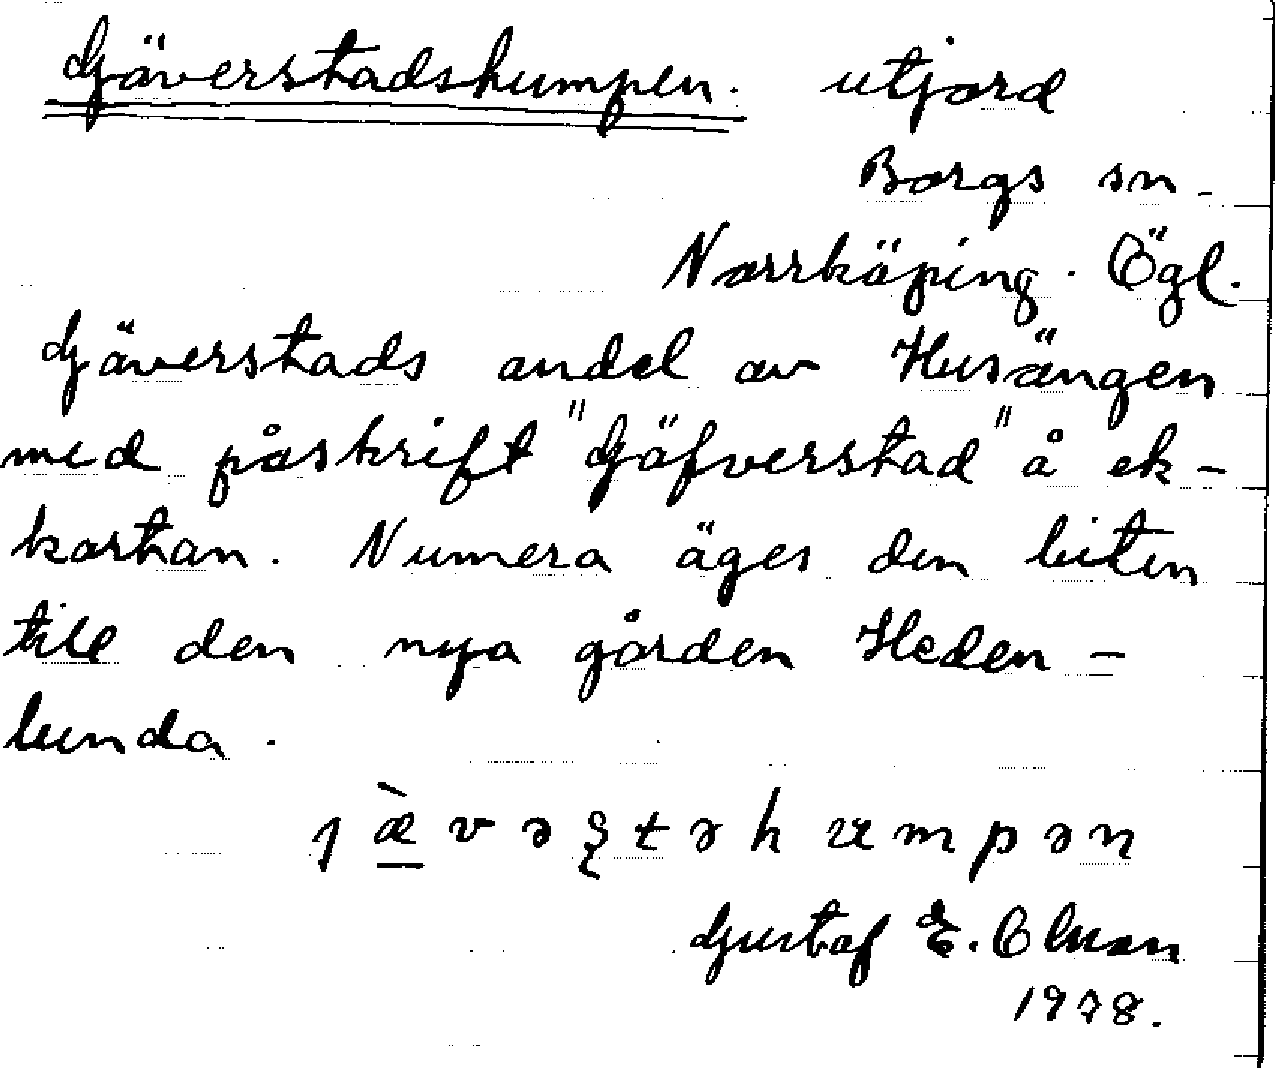 Gäverstadshumpen. utjord
Borgs sn.
Norrköping. Ögl.
Gäverstads andel av Husängen
med påskrift "Gäfverstad" å ek-
kartan. Numera äges den biten
till den nya gården Heden-
lunda.
Gustaf E. Olsson
1978.